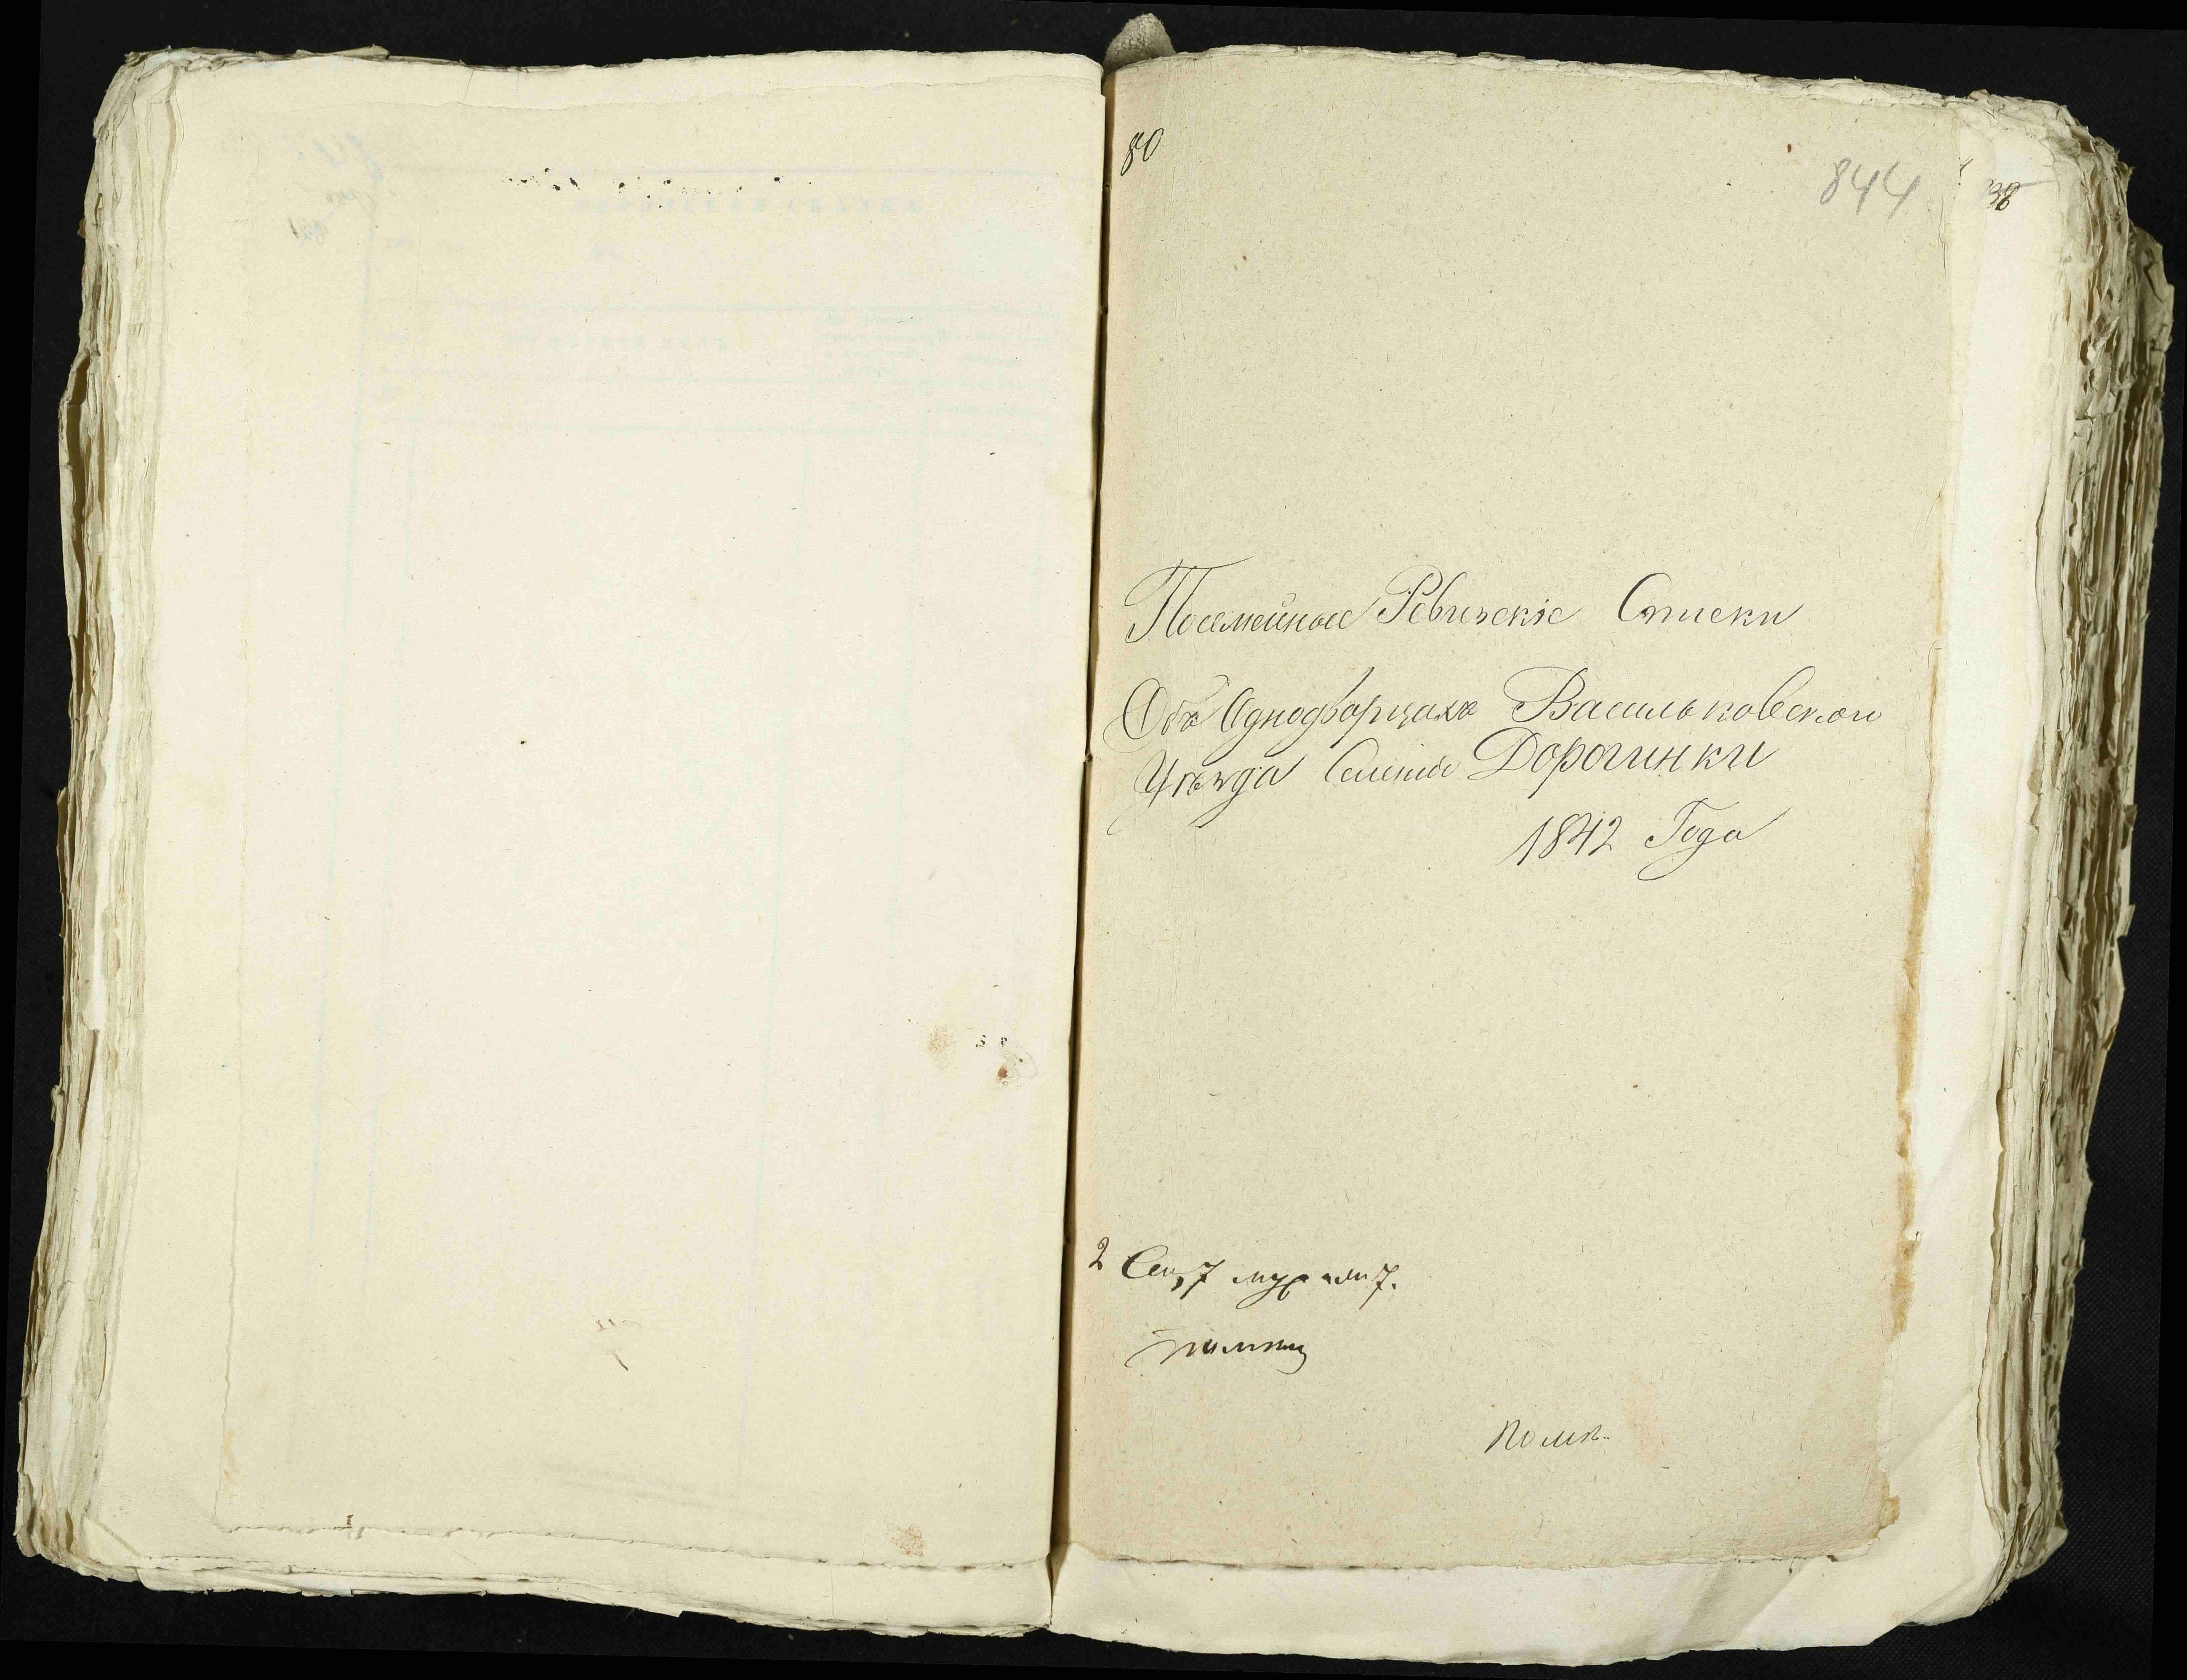 80
844
38
Посемейные Ревизскіе Списки
Объ Однодворцахъ Васильковскаго
Уѣзда Селенія Дорогинки
1842 Года
2 Сем, 7 муж 7.